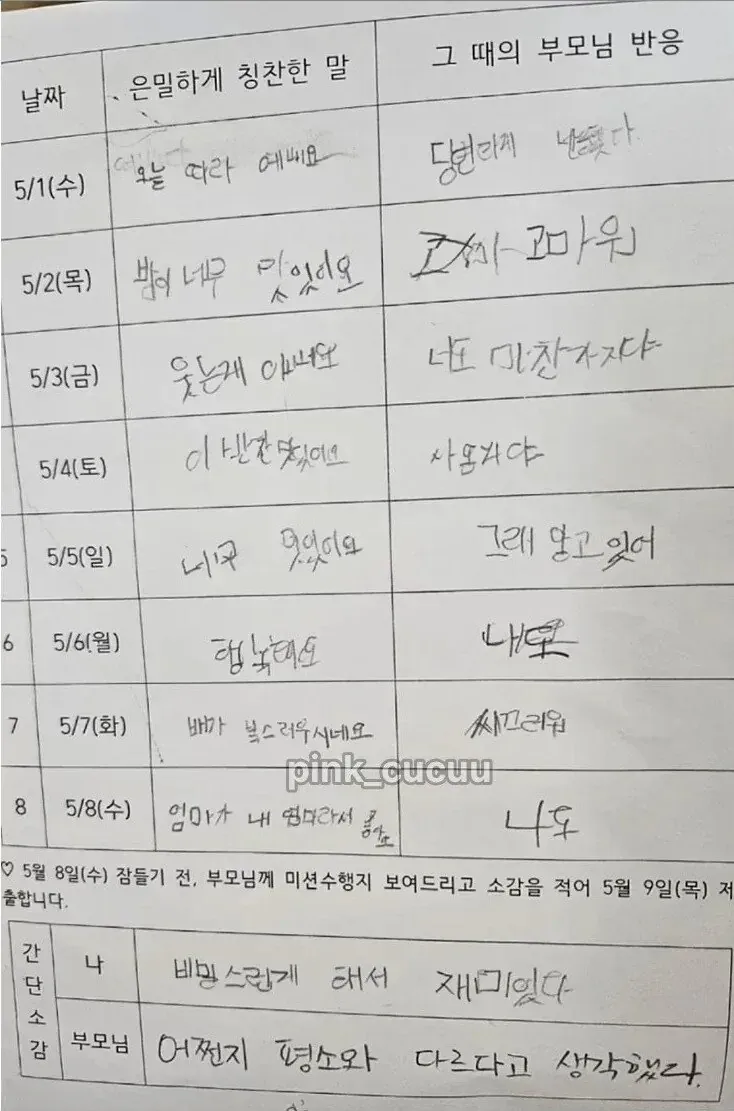 날짜 은밀하게 칭찬한 말 그 때의 부모님 반응
5/1(수) 오늘 따라 예뻐요 당연하게
5/2(목) 밥이 너무 맛있어요 고마워
5/3(금) 웃는게 이뻐요 너도 마찬가지야
5/4(토) 이 반찬 맛있어요
5/5(일) 너무 멋있어요 그래 알고 잇어
6 5/6(월) 행복해요 나도
7 5/7(화) 배가 복스러우시네요 씨끄러워
8 5/8(수) 엄마가 내 엄마라서 좋아요 나도
pink_cucuu
♡ 5월 8일(수) 잠들기 전, 부모님께 미션수행지 보여드리고 소감을 적어 5월 9일(목) 제
출합니다.
간단소감
나 비밀스럽게 해서 재미있다
부모님 어쩐지 평소와 다르다고 생각했다.